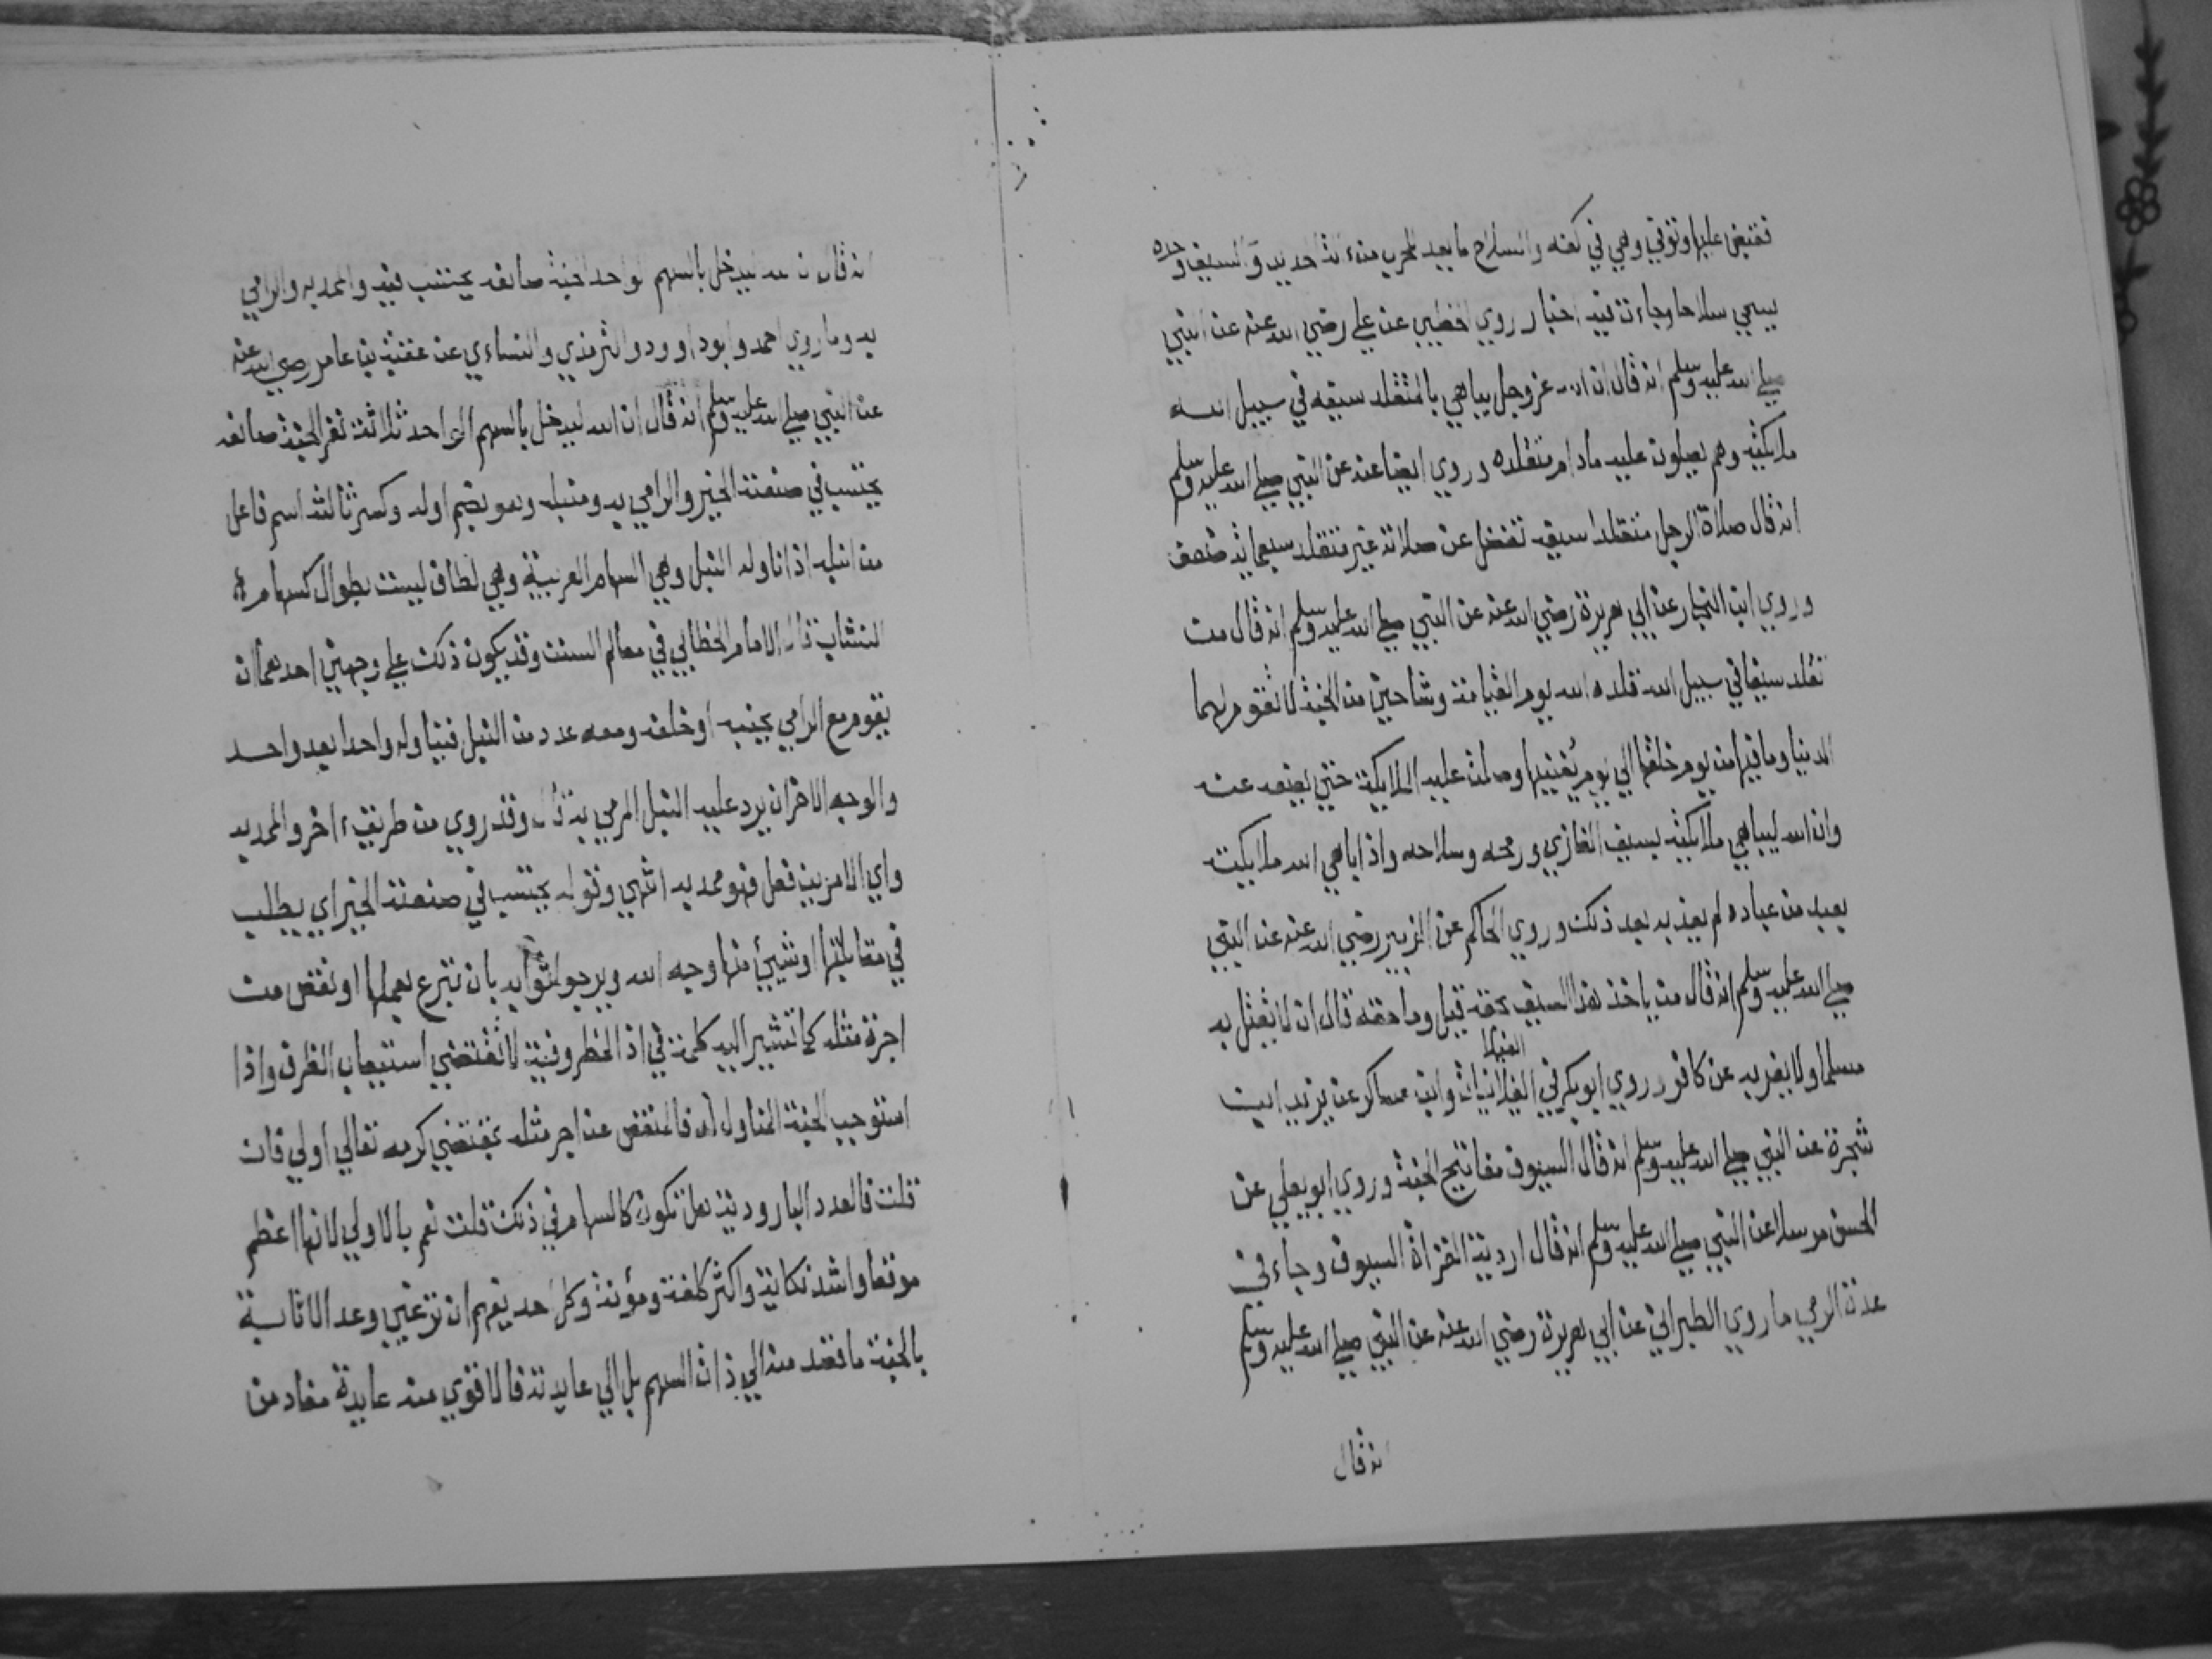 فقبض عليها وتوفي وهي في كفه والسلاح ما يعد للحرب من الة الحديد والسيف وحده
يسمي سلاحا وجاءت فيه اخبار روي الخطيب عن علي رضي الله عنه عن النبي
صلي الله عليه وسلم انه قال ان الله عز وجل يباهي بالمتقلد سيفه في سبيل الله
ملايكته وهم يصلون عليه مادام متقلده وروي ايضا عنه عن النبي صلي الله عليه وسلم
انه قال صلاة الرجل متقلدا سيفه تفضل عن صلاته غير متقلد سبعماية ضعف
وروي ابن النجار عن ابي هريرة رضي الله عنه عن النبي صلي الله عليه وسلم انه قال من
تقلد سيفا في سبيل الله قلده الله يوم القيامة وشاحين من الجنة لا تقوم لهما
الدنيا وما فيها من يوم خلقها الي يوم يفنيها وصلت عليه الملايكة حتي يضعه عنه
وان الله ليباهي ملايكته بسيف الغازي ورمحه وسلاحه واذا باهي الله ملايكته
بعبد من عباده لم يعذبه بعد ذلك وروي الحاكم عن الزبير رضي الله عنه عن النبي
صلي الله عليه وسلم انه قال من ياخذ هذا السيف بحقه قيل وما حقه قال ان لا يقتل به
مسلما ولا يفر به عن كافر وروي ابو بكر في الغيلانيات وابن عساكر عن يزيد ابن
شجرة عن النبي صلي الله عليه وسلم انه قال السيوف مفاتيح الجنة وروي ابو يعلي عن
الحسن مرسلا عن النبي صلي الله عليه وسلم انه قال اردية الغزاة السيوف وجاء في
عدة الرمي ما روي الطبراني عن ابي هريرة رضي الله عنه عن النبي صلي الله عليه وسلم
انه قال
انه قال ان الله ليدخل بالسهم الواحد الجنة صانعه يحتسب فيه والممد به والرامي
به وما روي احمد وابو داوود والترمذي والنساءي عن عقبة بن عامر رضي الله عنه
عن النبي صلي الله عليه وسلم انه قال ان الله ليدخل بالسهم الواحد ثلاثة نفر الجنة صانعه
يحتسب في صنعته الخير والرامي به ومنبله وهو بضم اوله وكسر ثالثه اسم فاعل
من انبله اذا ناوله النبل وهي السهام العربية وهي لطاف ليست بطوال كسهام
النشاب قال الامام الخطابي في معالم السنن وقد يكون ذلك علي وجهين احدهما ان
يقوم مع الرامي بجنبه او خلفه ومعه عدد من النبل فيناوله واحدا بعد واحد
والوجه الاخر ان يرد عليه النبل المرمي به قال وقد روي من طريق اخر والممد به
واي الامرين فعل فهو ممد به انتهي وقوله يحتسب في صنعته الخير اي يطلب
في مقابلتها او شييء منها وجه الله ويرجو ثوابه بان تبرع بعملها او نقص من
اجرة مثله كما تشير اليه كلمة في اذ الظروفية لا تقتضي استيعاب الظرف واذا
استوجب الجنة المناول له فالمنقص عن اجر مثله بمقتضي كرمه تعالي اولي فان
قلت فالعدد البارودية هل تكون كالسهام في ذلك قلت نعم بالاولي لانها اعظم
موقعا واشد نكاية واكثر كلفة ومؤنة وكل احد يفهم ان ترغيبي وعد الاثابة
بالجنة ما قصد منه الي ذات السهم بل الي عايدته فالاقوي منه عايدة مفاد من